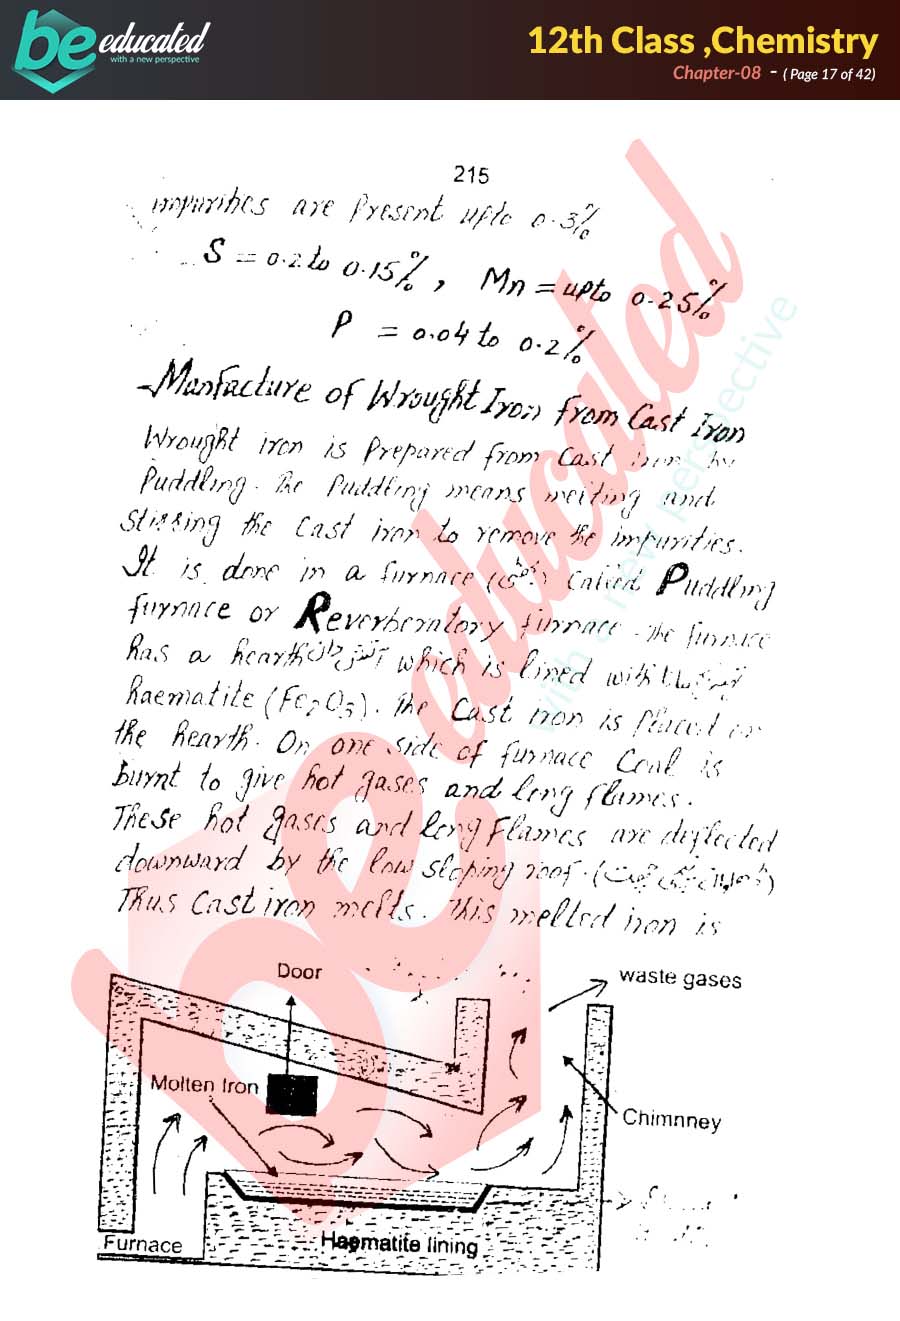 be educated
with a new perspective
12th Class ,Chemistry
Chapter-08 - ( Page 17 of 42)
215
impurities are Present upto 0.3%
S = 0.2 to 0.15%, Mn = upto 0.25%
P = 0.04 to 0.2%
Manfacture of Wrought Iron from Cast Iron
Wrought iron is Prepared from Cast iron by
Puddling. The Puddling means melting and
stirring the cast iron to remove the impurities.
It is done in a furnace (بھٹی) Called Puddling
furnace or Reverberatory furnace. The furnace
has a hearth آتش دان which is lined with
haematite (Fe2O3). The Cast iron is Placed on
the hearth. On one side of furnace Coal is
burnt to give hot gases and long flames.
These hot gases and long Flames are deflected
downward by the low sloping roof.
Thus Cast iron melts. This melted iron is
be educated
with a new perspective
Door
waste gases
Molten Iron
Chimnney
Furnace
Haematite lining